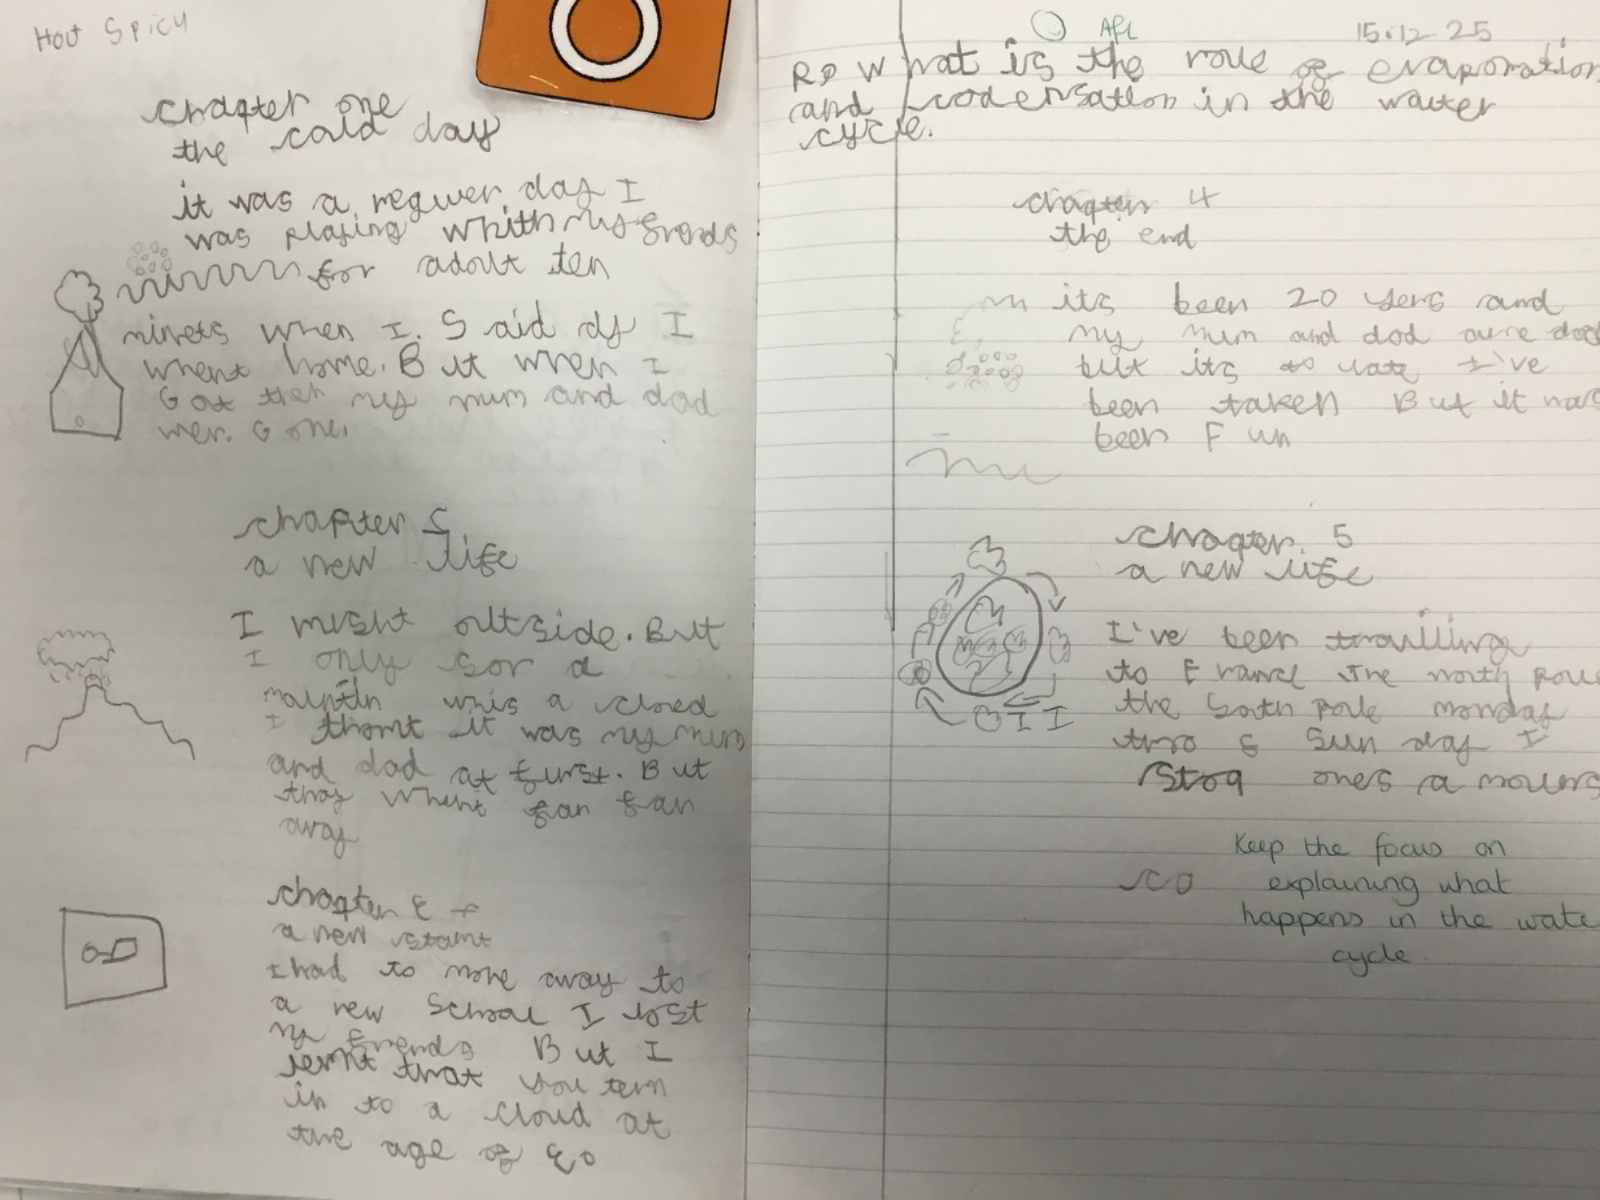 Hot Spicy
chapter one
the cold day
it was a reguer day I
was plaing whith my frends
for adout ten
minets when I. Said dy I
whent home. But when I
Got ther my mum and dad
wer. Gone.
chapter 2
a new life
I might outside. But
I only sor a
mauntin whis a cloed
I thornt it was my mum
and dad at furst. But
thay whent far far
away
chapter 3
a new start
I had to move away to
a new School I lost
my frends But I
lernt that you tern
in to a cloud at
the age of 20
AfL
15.12.25
RQ What is the role of evaporation
and codensation in the water
cycle.
chapter 4
the end
its been 20 yers and
my mum and dad
but its to late I've
been taken But it
been Fun
chapter. 5
a new life
I've been travilling
to France the north pole
the South pole monday
two Sun day I
Stop ones a
co
Keep the focus on
explaining what
happens in the wate
cycle.